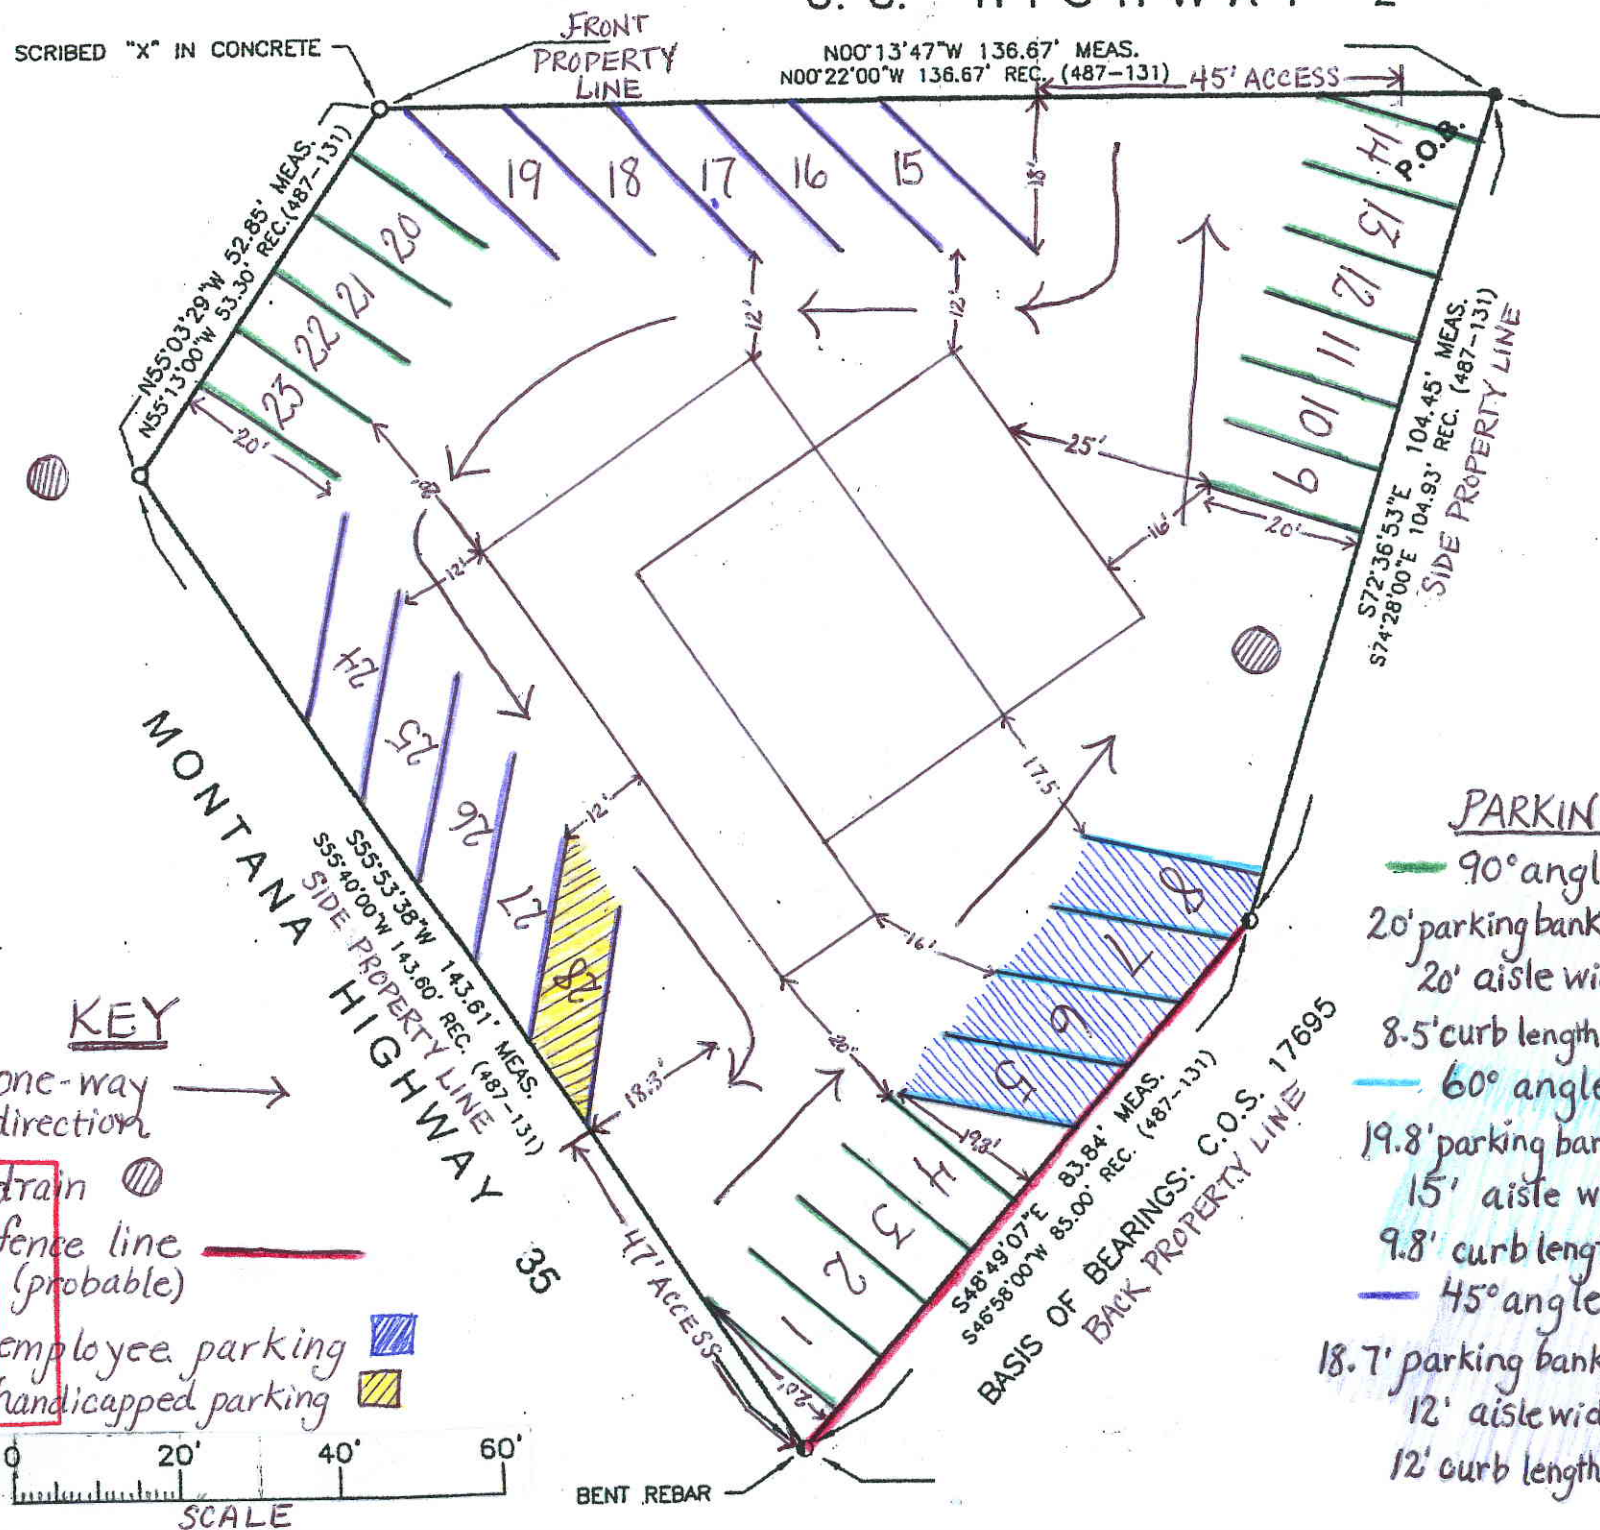 U. S. HIGHWAY 2
SCRIBED "X" IN CONCRETE
FRONT
PROPERTY
LINE
N00°13'47"W 136.67' MEAS.
N00°22'00"W 136.67' REC. (487-131)
45' ACCESS
P.O.B.
N55°03'29"W 52.85' MEAS.
N55°13'00"W 53.30' REC.(487-131)
19
18
17
16
15
18'
14
13
12
11
10
9
20
21
22
23
20'
12'
12'
25'
16'
20'
20'
12'
S72°36'53"E 104.45' MEAS.
S74°28'00"E 104.93' REC. (487-131)
SIDE PROPERTY LINE
24
25
26
27
28
12'
18.3'
17.5'
16'
20'
8
7
6
5
19.8'
4
3
2
1
20'
MONTANA HIGHWAY 35
S55°53'38"W 143.61' MEAS.
S55°40'00"W 143.60' REC. (487-131)
SIDE PROPERTY LINE
47' ACCESS
S48°49'07"E 83.84' MEAS.
S46°58'00"W 85.00' REC. (487-131)
BASIS OF BEARINGS: C.O.S. 17695
BACK PROPERTY LINE
BENT REBAR
KEY
one-way
direction
drain
fence line
(probable)
employee parking
handicapped parking
0 20' 40' 60'
SCALE
PARKIN
90° angl
20' parking bank
20' aisle wi
8.5' curb length
60° angle
19.8' parking bar
15' aisle w
9.8' curb leng
45° angle
18.7' parking bank
12' aisle wid
12' curb length